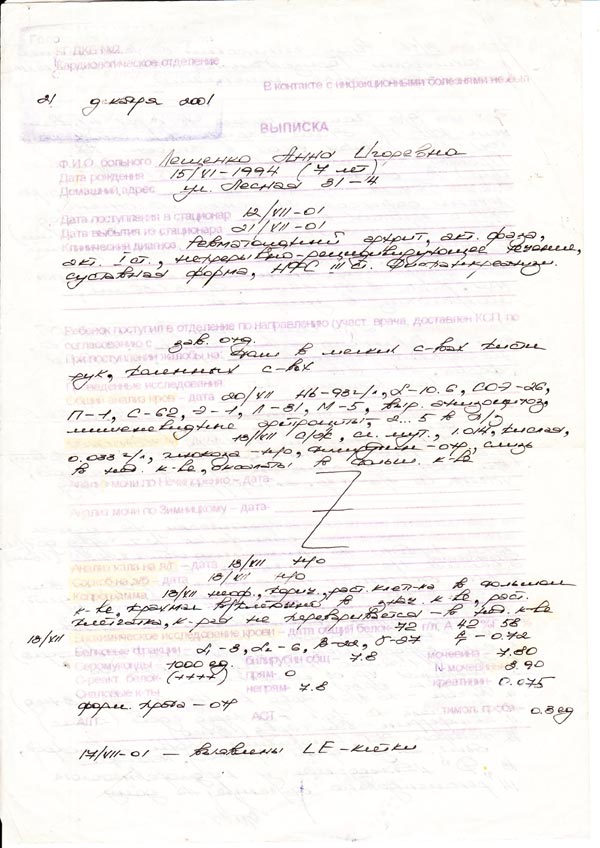 КГ ДКБ №2
Кардиологическое отделение
В контакте с инфекционными болезнями не был
21 декабря 2001
ВЫПИСКА
Ф.И.О. больного Лещенко Анна Игоревна
Дата рождения 15/VI-1994 (7 лет)
Домашний адрес ул. Лесная 31-4
Дата поступления в стационар 12/VII-01
Дата выбытия из стационара 21/VII-01
Клинический диагноз Ревматоидный артрит, акт. фаза,
акт. I ст., непрерывно-рецидивирующее течение,
суставная форма, НФС III ст. Диспанкреатизм.
Ребенок поступил в отделение по направлению (участ. врача, доставлен КСП, по
согласованию с зав. отд.
При поступлении жалобы на: боли в мелких с-вах кисти
рук, коленных с-вах
Проведенные исследования:
Общий анализ крови - дата 20/VII Hb-93 г/л, L-10.6, СОЭ-26,
П-1, С-62, Э-1, Л-31, М-5, выр. анизоцитоз,
мишеневидные эритроциты, 2...5 в п/з
13/VII с/ж, сл. мут., 1.014, кислая,
0.033 г/л, глюкоза - н/о, - отр, слизь
в нед. к-ве, оксалаты в больш. к-ве
Анализ мочи по Нечипоренко - дата-
Анализ мочи по Зимницкому - дата-
Анализ кала на я/г - дата 13/VII н/о
Соскоб на э/б - дата 13/VII н/о
Копрограмма 13/VII неоф., корич., раст. клет-ка в большом
к-ве, крахмал в к-ве, раст.
клетчатка, к-рая не переваривается - в нед. к-ве
13/VII Биохимическое исследование крови - дата общий белок- 72 г/л, А 42 % 58 %
Белковые фракции - α₁-3, α₂-6, β-22, γ-27 0.72
Серомукоиды 1000 ед. билирубин общ - 7.8 мочевина - 7.30
С-реакт. белок- (++++) прям- 0 N-мочевины- 3.90
Сиаловые к-ты непрям- 7.8 креатинин- 0.075
форм. проба - отр
АЛТ АСТ тимол. проба - 0.3 ед
17/VII-01 - выявлены LE-клетки